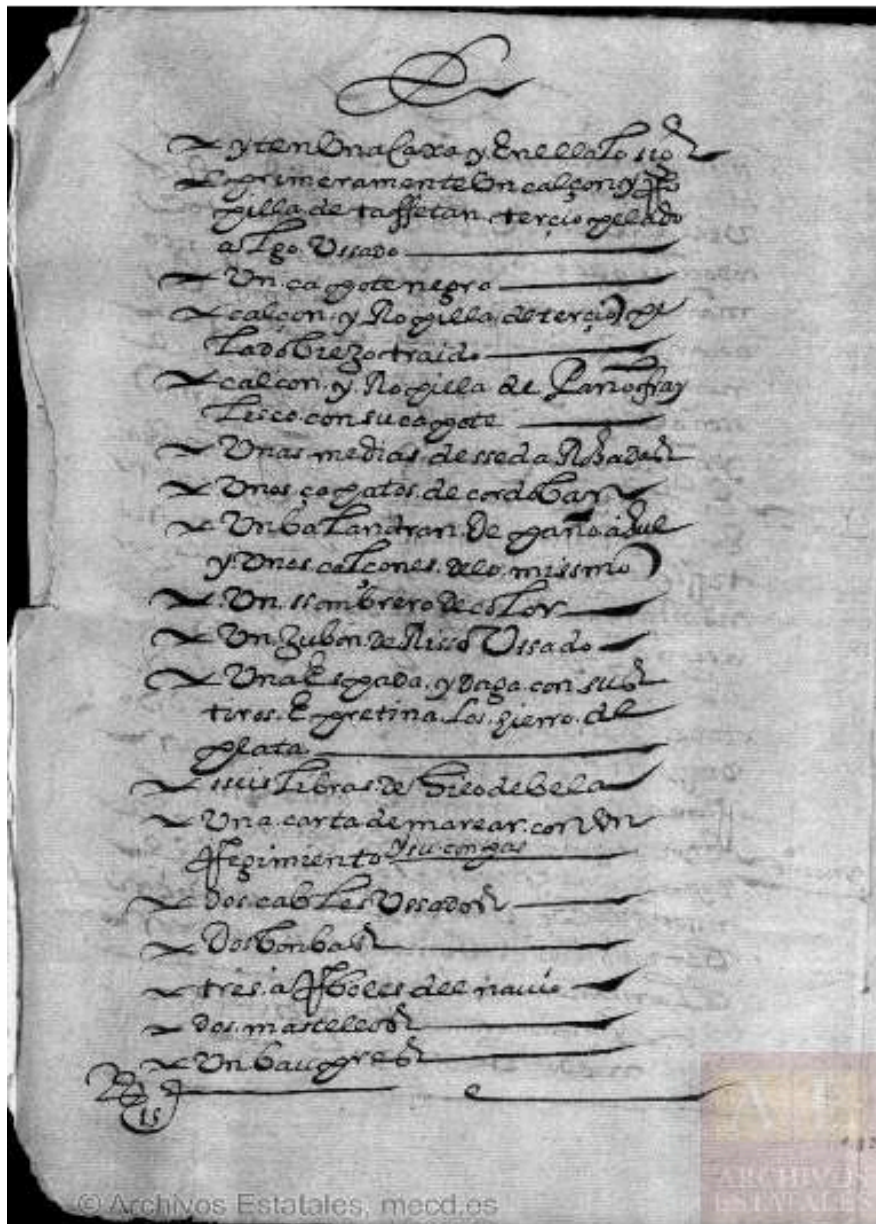 yten Una Caxa y En ella Lo sio
primeramente Un calçon y Ro
pilla de taffetan terçiopelado
algo Ussado
Un capote negro
calçon y Ropilla de terçiope
lado biezo traido
calçon y Ropilla de Paño fray
lesco con su capote
Unas medias de sseda Rosadas
Unos çapatos de cordoban
Un balandran De paño açul
y Unos calcones delo missmo
Un ssombrero de color
Un Jubon de Risso Ussado
Una Espada y Daga con sus
tiros E pretina los yerro de
plata
seis libras de hilo de bela
Una carta de marear con Un
Regimiento y su conpas
dos cables Ussados
Dos bonbas
tres arboles del navio
dos masteleos
Un baupres
15
© Archivos Estatales, mecd.es
AE
ARCHIVOS
ESTATALES